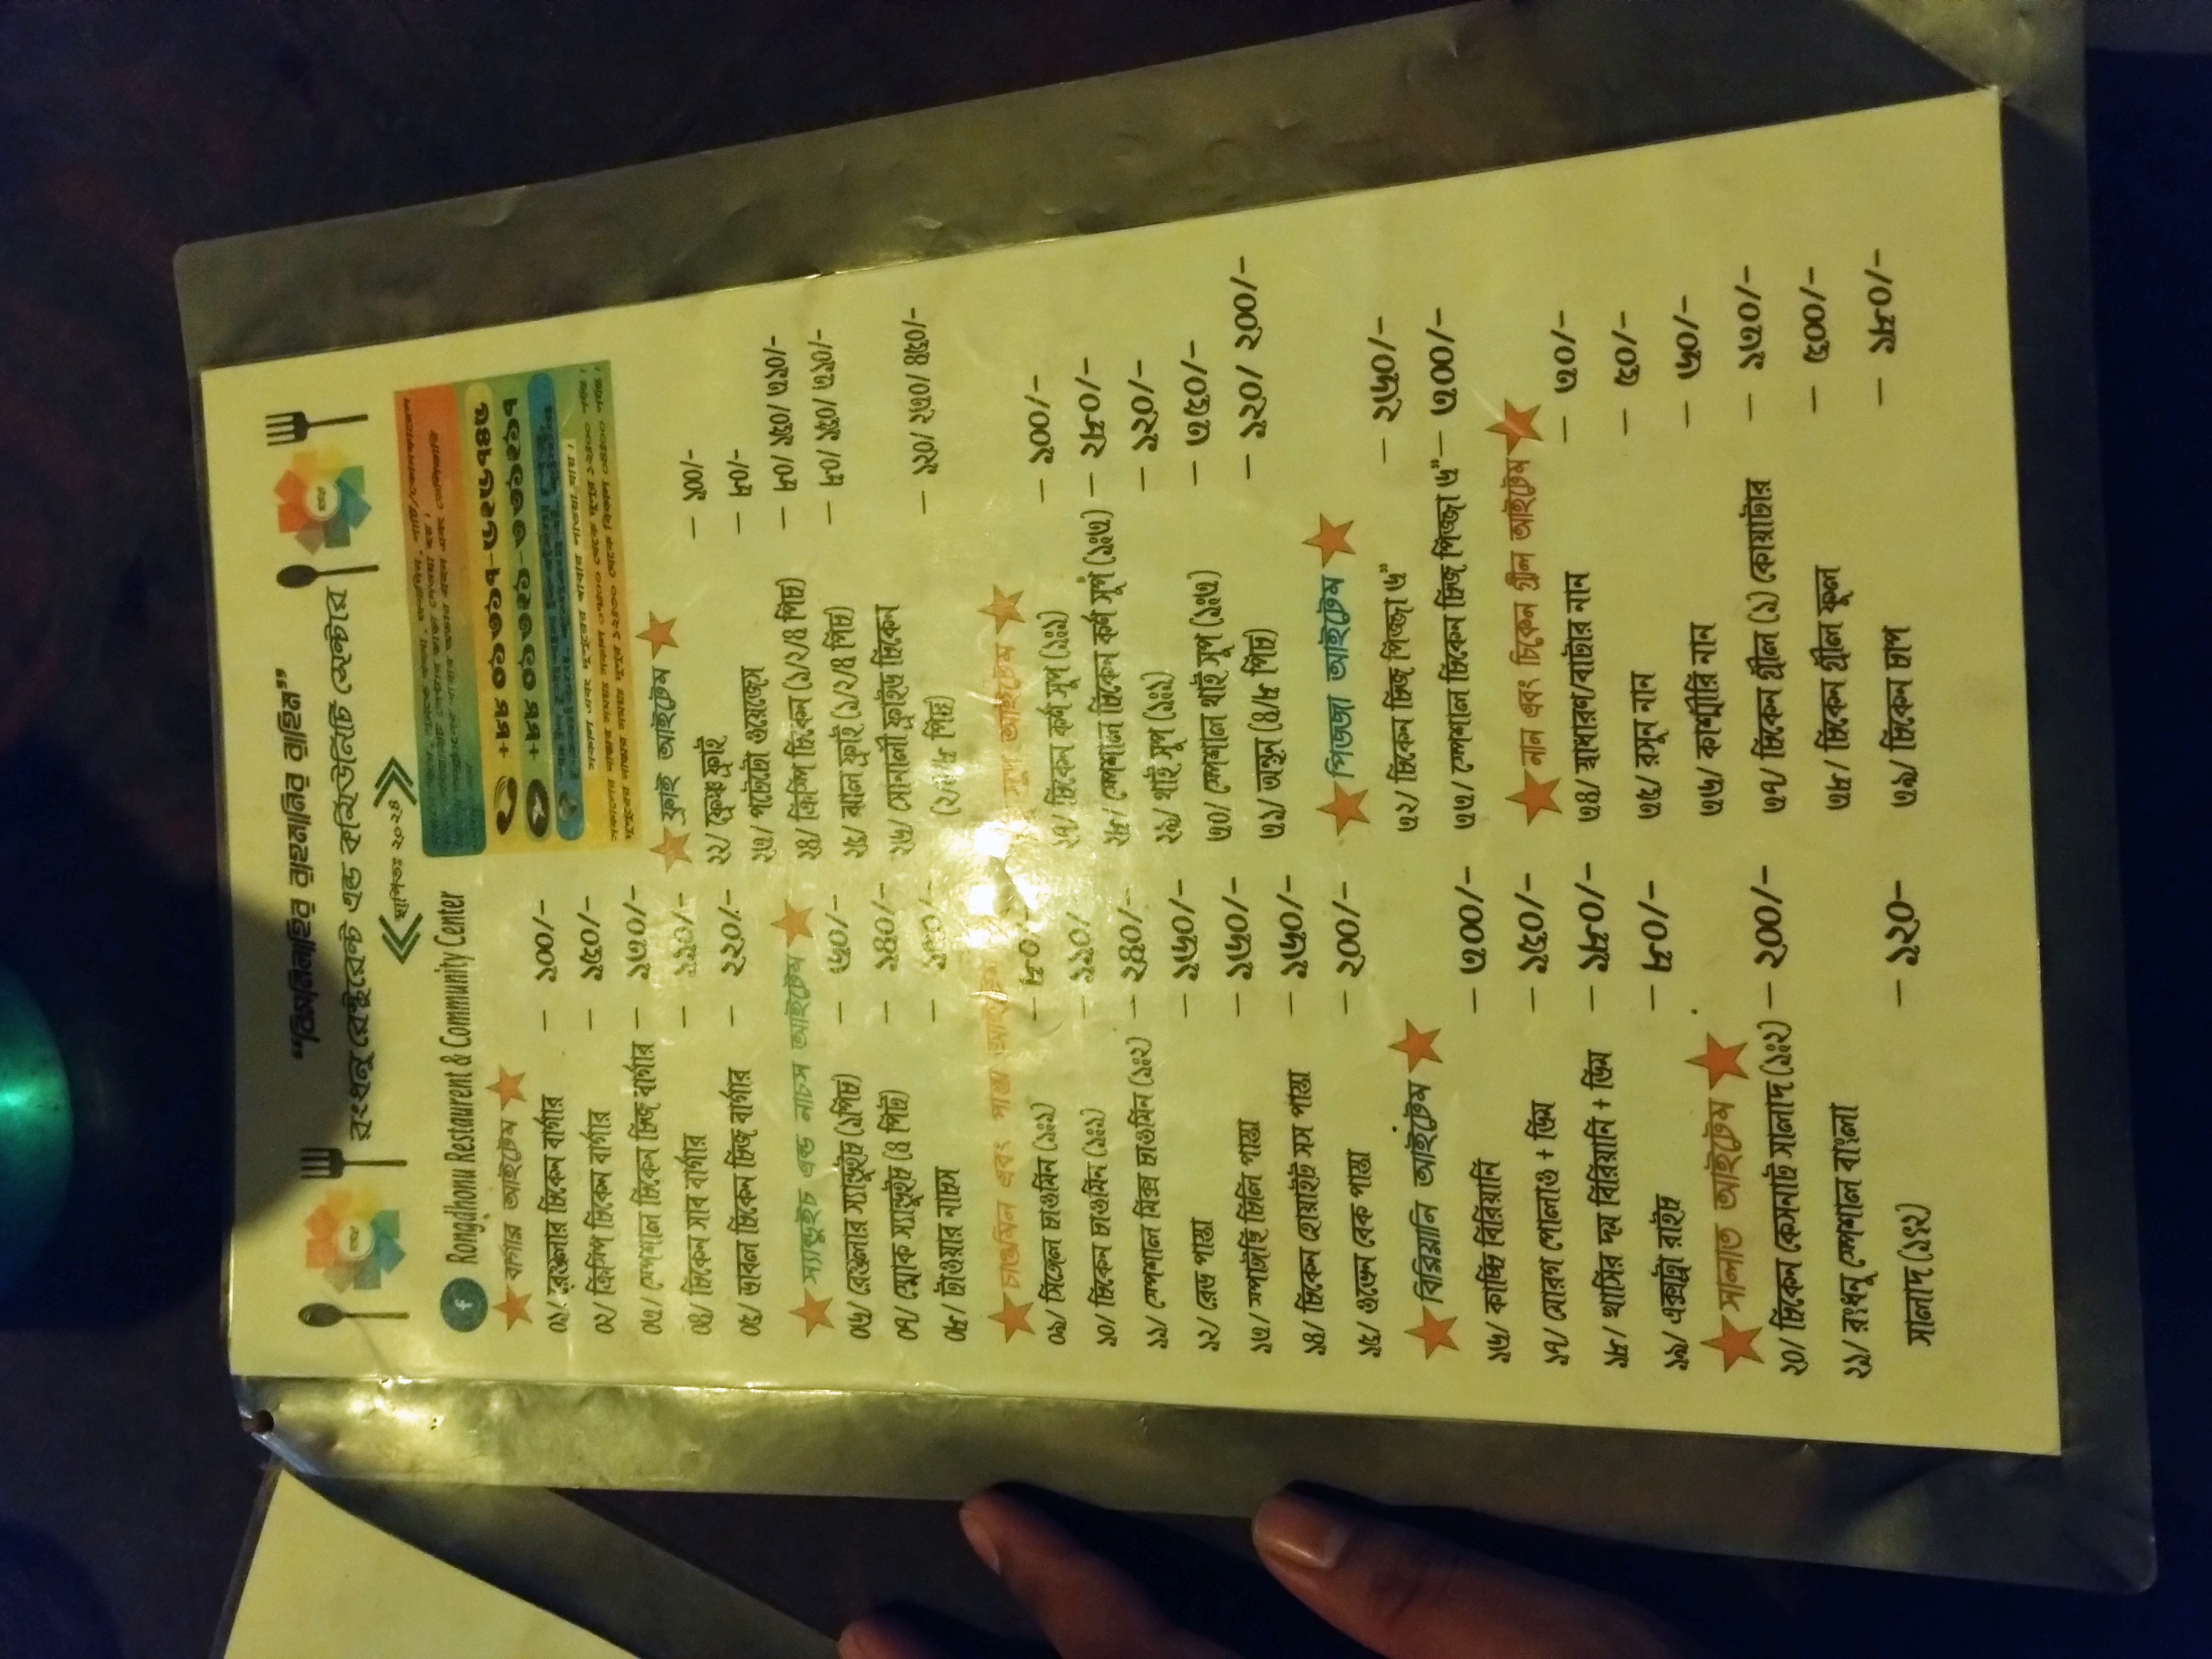 "বিসমিল্লাহির রাহমানির রাহিম"
রংধনু রেস্টুরেন্ট এন্ড কমিউনিটি সেন্টার
স্থাপিতঃ ২০২৪
Rongdhonu Restaurent & Community Center
বার্গার আইটেম
০১/ রেগুলার চিকেন বার্গার – ১০০/-
০২/ ক্রিসিপ চিকেন বার্গার – ১৫০/-
০৩/ স্পেশাল চিকেন চিজ বার্গার – ১৭০/-
০৪/ চিকেন সাব বার্গার – ১১০/-
০৫/ ডাবল চিকেন চিজ বার্গার – ২২০/-
স্যান্ডুইচ এন্ড নাচস আইটেম
০৬/ রেগুলার স্যান্ডুইচ (১পিচ) – ৬০/-
০৭/ স্মোক স্যান্ডুইচ (৪ পিচ) – ১৪০/-
০৮/ টাওয়ার নাচস –
চাওমিন এবং পাস্তা
০৯/ সিঙ্গেল চাওমিন (১ঃ১) – ৮০/-
১০/ চিকেন চাওমিন (১ঃ১) – ১১০/
১১/ স্পেশাল মিক্স চাওমিন (১ঃ২) – ২৪০/-
১২/ রেড পাস্তা – ১৬০/-
১৩/ সপাঙ্গাই চিলি পাস্তা – ১৬০/-
১৪/ চিকেন হোয়াইট সস পাস্তা – ১৬০/-
১৫/ ওভেন বেক পাস্তা – ২০০/-
বিরিয়ানি আইটেম
১৬/ কাচ্চি বিরিয়ানি – ৩০০/-
১৭/ মোরগ পোলাও + ডিম – ১৫০/-
১৮/ খাসির দম বিরিয়ানি + ডিম – ১৮০/-
১৯/ এক্সট্রা রাইচ – ৮০/-
সালাত আইটেম
২০/ চিকেন কেসনাট সালাদ (১ঃ২) – ২০০/-
২১/ রংধনু স্পেশাল বাংলা
সালাদ (১ঃ২) – ১২০-
+৮৮ ০০
+৮৮ ০
ফ্রাই আইটেম
২২/ ফ্রেঞ্চ ফ্রাই – ১০০/-
২৩/ পটেটো ওয়েজেস – ৮০/-
২৪/ ক্রিস্পি চিকেন (১/২/৪ পিচ) – ৮০/ ১৫০/ ৩১০/-
২৫/ ঝাল ফ্রাই (১/২/৪ পিচ) – ৮০/ ১৫০/ ৩১০/-
২৬/ সোনালী ফ্রাইড চিকেন
– ১২০/ ২৩০/ ৪৫০/-
সুপ আইটেম
২৭/ চিকেন কর্ণ সুপ (১ঃ১) – ১০০/-
২৮/ স্পেশাল চিকেন কর্ণ সুপ (১ঃ৩) – ২৮০/-
২৯/ থাই সুপ (১ঃ১) – ১২০/-
৩০/ স্পেশাল থাই সুপ (১ঃ৩) – ৩৫০/-
৩১/ অন্থন (৪/৮ পিচ) – ১২০/ ২০০/-
পিজ্জা আইটেম
৩২/ চিকেন চিজ পিজ্জা ৬" – ২৬০/-
৩৩/ স্পেশাল চিকেন চিজ পিজ্জা ৬" – ৩০০/-
নান এবং চিকেন গ্রীল আইটেম
৩৪/ স্বাধারণ/বাটার নান – ৩০/-
৩৫/ রসুন নান – ৫০/-
৩৬/ কাশ্মীরি নান – ৬০/-
৩৭/ চিকেন গ্রীল (১) কোয়াটার – ১৩০/-
৩৮/ চিকেন গ্রীল ফুল – ৫০০/-
৩৯/ চিকেন চাপ – ১৮০/-